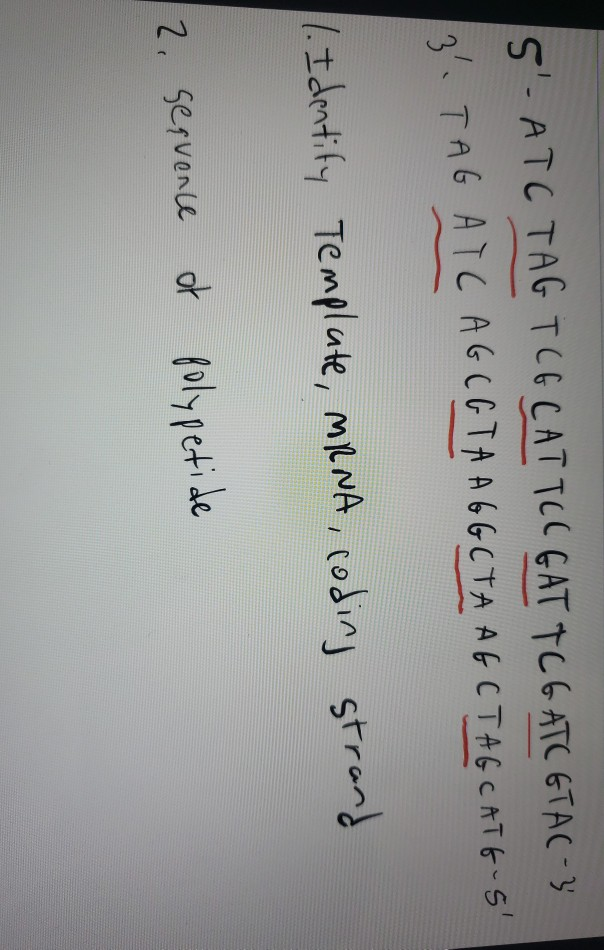 5'- ATC TAG TCGCAT TCC GAT TCGATCGTAC-3'
3'- TAG ATC AGCGTAAGGCTA AGCTAGCATG-5'
1. Identify Template, mRNA, coding strand
2. sequence of polypetide